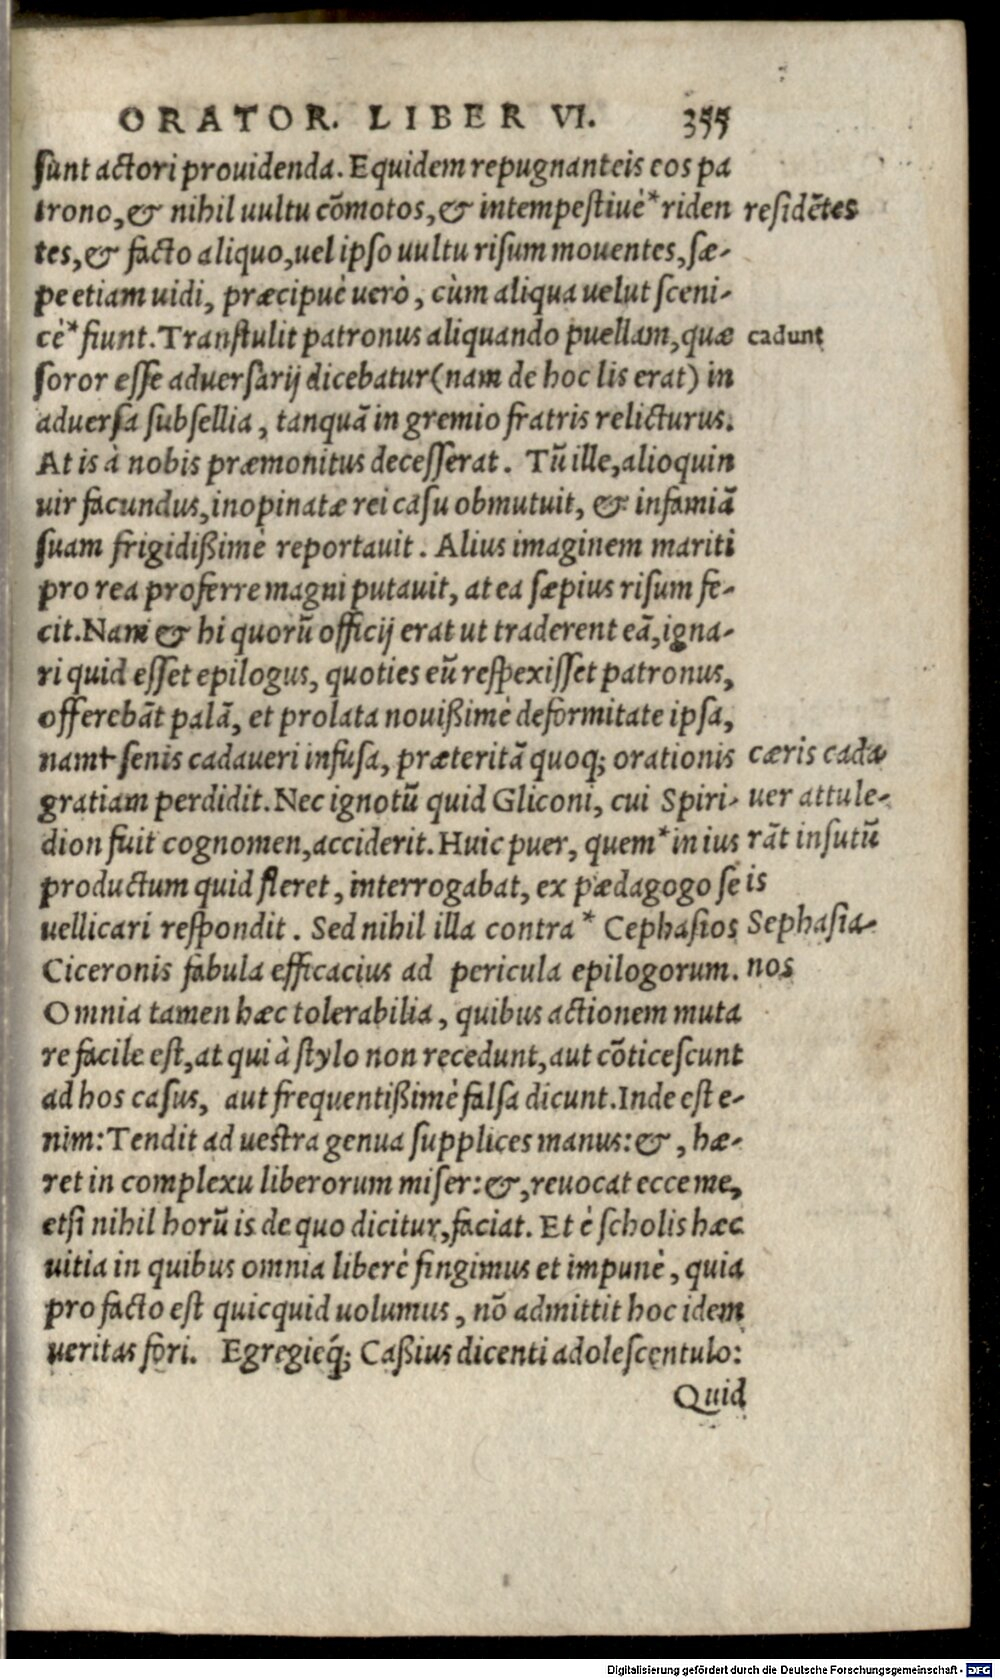 ORATOR. LIBER VI. 355
sunt actori prouidenda. Equidem repugnanteis eos pa
trono, & nihil uultu cōmotos, & intempestiuè* riden residētes
tes, & facto aliquo, uel ipso uultu risum mouentes, sæ-
pe etiam uidi, præcipuè uerò, cùm aliqua uelut sceni-
cè* fiunt. Transtulit patronus aliquando puellam, quæ cadunt
soror esse aduersarij dicebatur (nam de hoc lis erat) in
aduersa subsellia, tanquā in gremio fratris relicturus.
At is à nobis præmonitus decesserat. Tū ille, alioquin
uir facundus, inopinatæ rei casu obmutuit, & infamiā
suam frigidißimè reportauit. Alius imaginem mariti
pro rea proferre magni putauit, at ea sæpius risum fe-
cit. Nam & hi quorū officij erat ut traderent eā, igna-
ri quid esset epilogus, quoties eū respexisset patronus,
offerebāt palā, et prolata nouißimè deformitate ipsa,
nam† senis cadaueri infusa, præteritā quoq; orationis cæris cada
gratiam perdidit. Nec ignotū quid Gliconi, cui Spiri- uer attule-
dion fuit cognomen, acciderit. Huic puer, quem* in ius rāt insutū
productum quid fleret, interrogabat, ex pædagogo se is
uellicari respondit. Sed nihil illa contra* Cephasios Sephasia-
Ciceronis fabula efficacius ad pericula epilogorum. nos
Omnia tamen hæc tolerabilia, quibus actionem muta
re facile est, at qui à stylo non recedunt, aut cōticescunt
ad hos casus, aut frequentißimè falsa dicunt. Inde est e-
nim: Tendit ad uestra genua supplices manus: &, hæ-
ret in complexu liberorum miser: &, reuocat ecce me,
etsi nihil horū is de quo dicitur, faciat. Et è scholis hæc
uitia in quibus omnia liberè fingimus et impunè, quia
pro facto est quicquid uolumus, nō admittit hoc idem
ueritas fori. Egregieq́; Caßius dicenti adolescentulo:
Quid
Digitalisierung gefördert durch die Deutsche Forschungsgemeinschaft - DFG